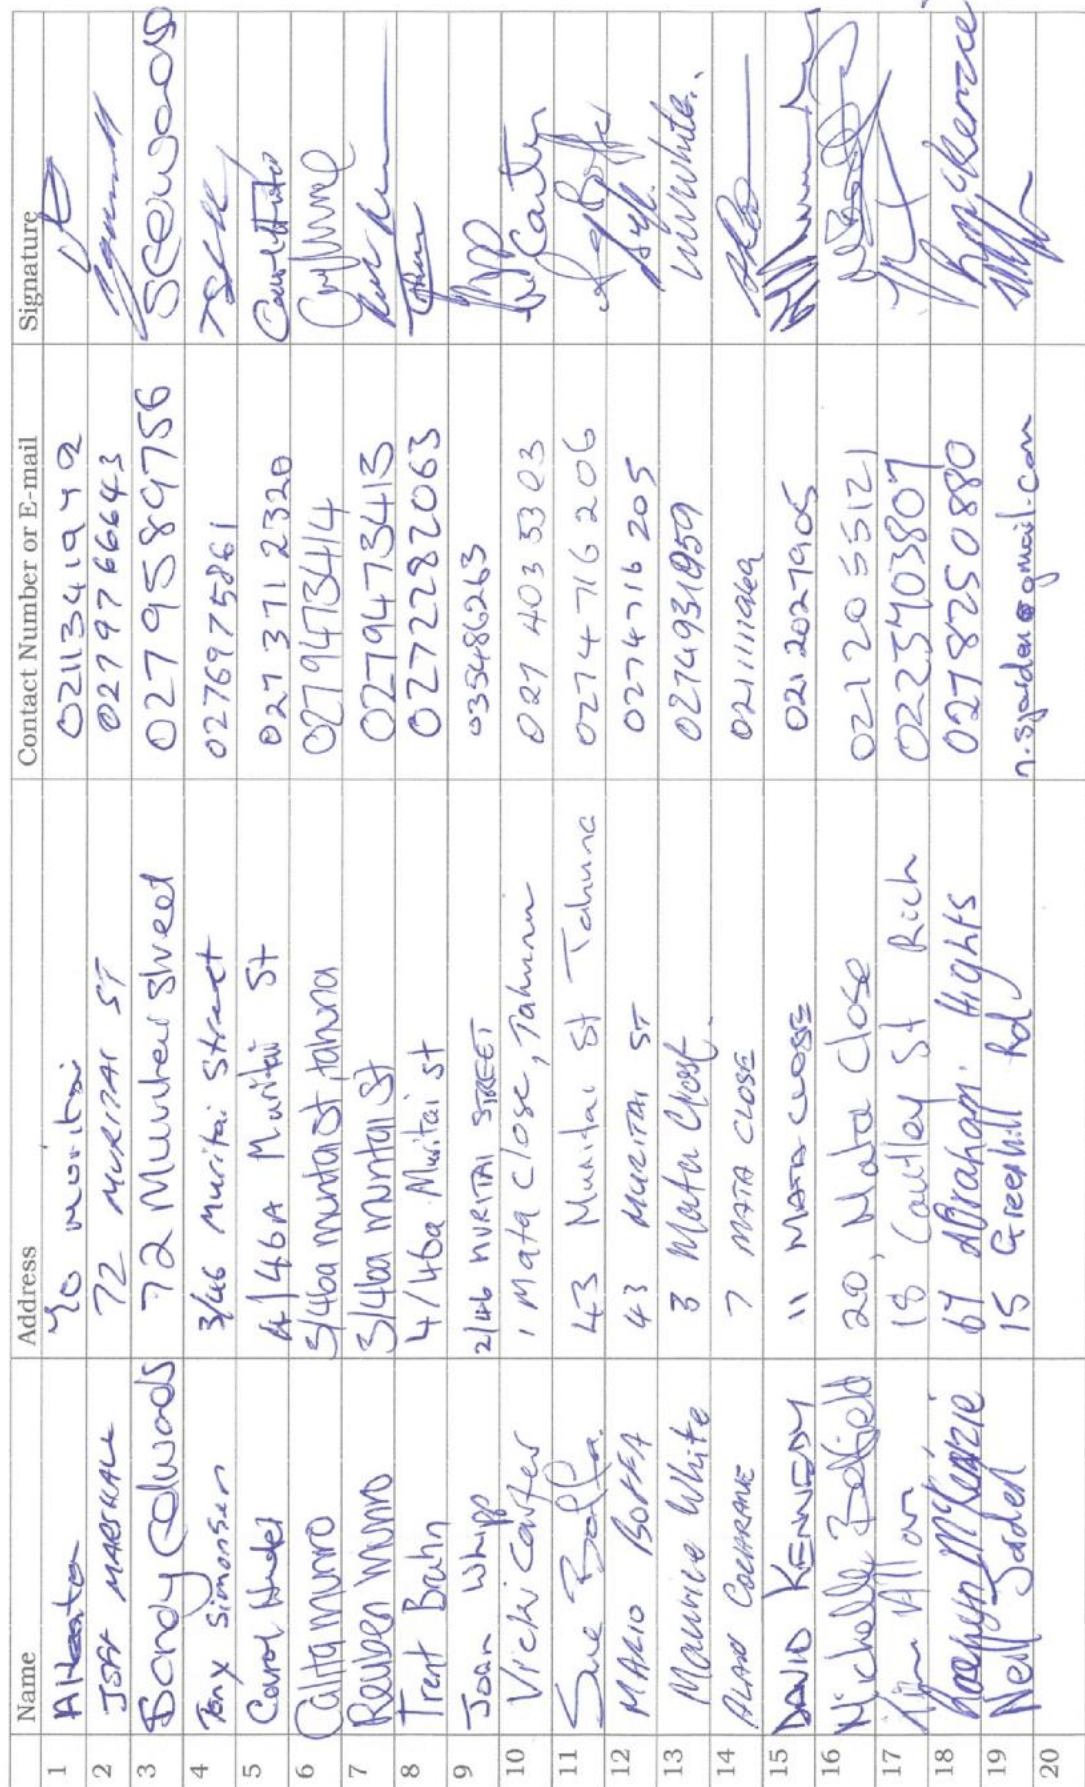 Name Address Contact Number or E-mail Signature
1 70 muritai
2 JEFF MARSHALL 72 MURITAI ST 0279766643
3 72 Muritai Street 02795889756
4 Tony Simonsen 3/46 Muritai Street 0276975861
5 Carol 4/46A Muritai St 027 371 2320
6 Calta munro 3/46a muritai St, tahuna 0279473414
7 Reuben Munro 3/46a muritai St 0279473413
8 Trent Brahn 4/46a Muritai st 0272282063
9 Joan Whipp 2/46 MURITAI STREET 035486263
10 Vicki Carter 1 Mata Close, Tahuna 027 403 5303 Carter
11 Sue Boffa. 43 Muritai St Tahuna 0274716206
12 MARIO BOFFA 43 MURITAI ST 0274716205
13 Maurice White 3 Mata Close 0274931959 White..
14 ALLAN COCHRANE 7 MATA CLOSE
15 DAVID KENNEDY 11 MATA CLOSE 021 2027905
16 Michelle Belfield 20, Mata Close 021 20 55121
17 18 Cautley St Rich 02237403807
18 McKenzie 67 Abraham. Hights 0278750880 McKenzie
19 Nell 15 Greenhill Rd
20